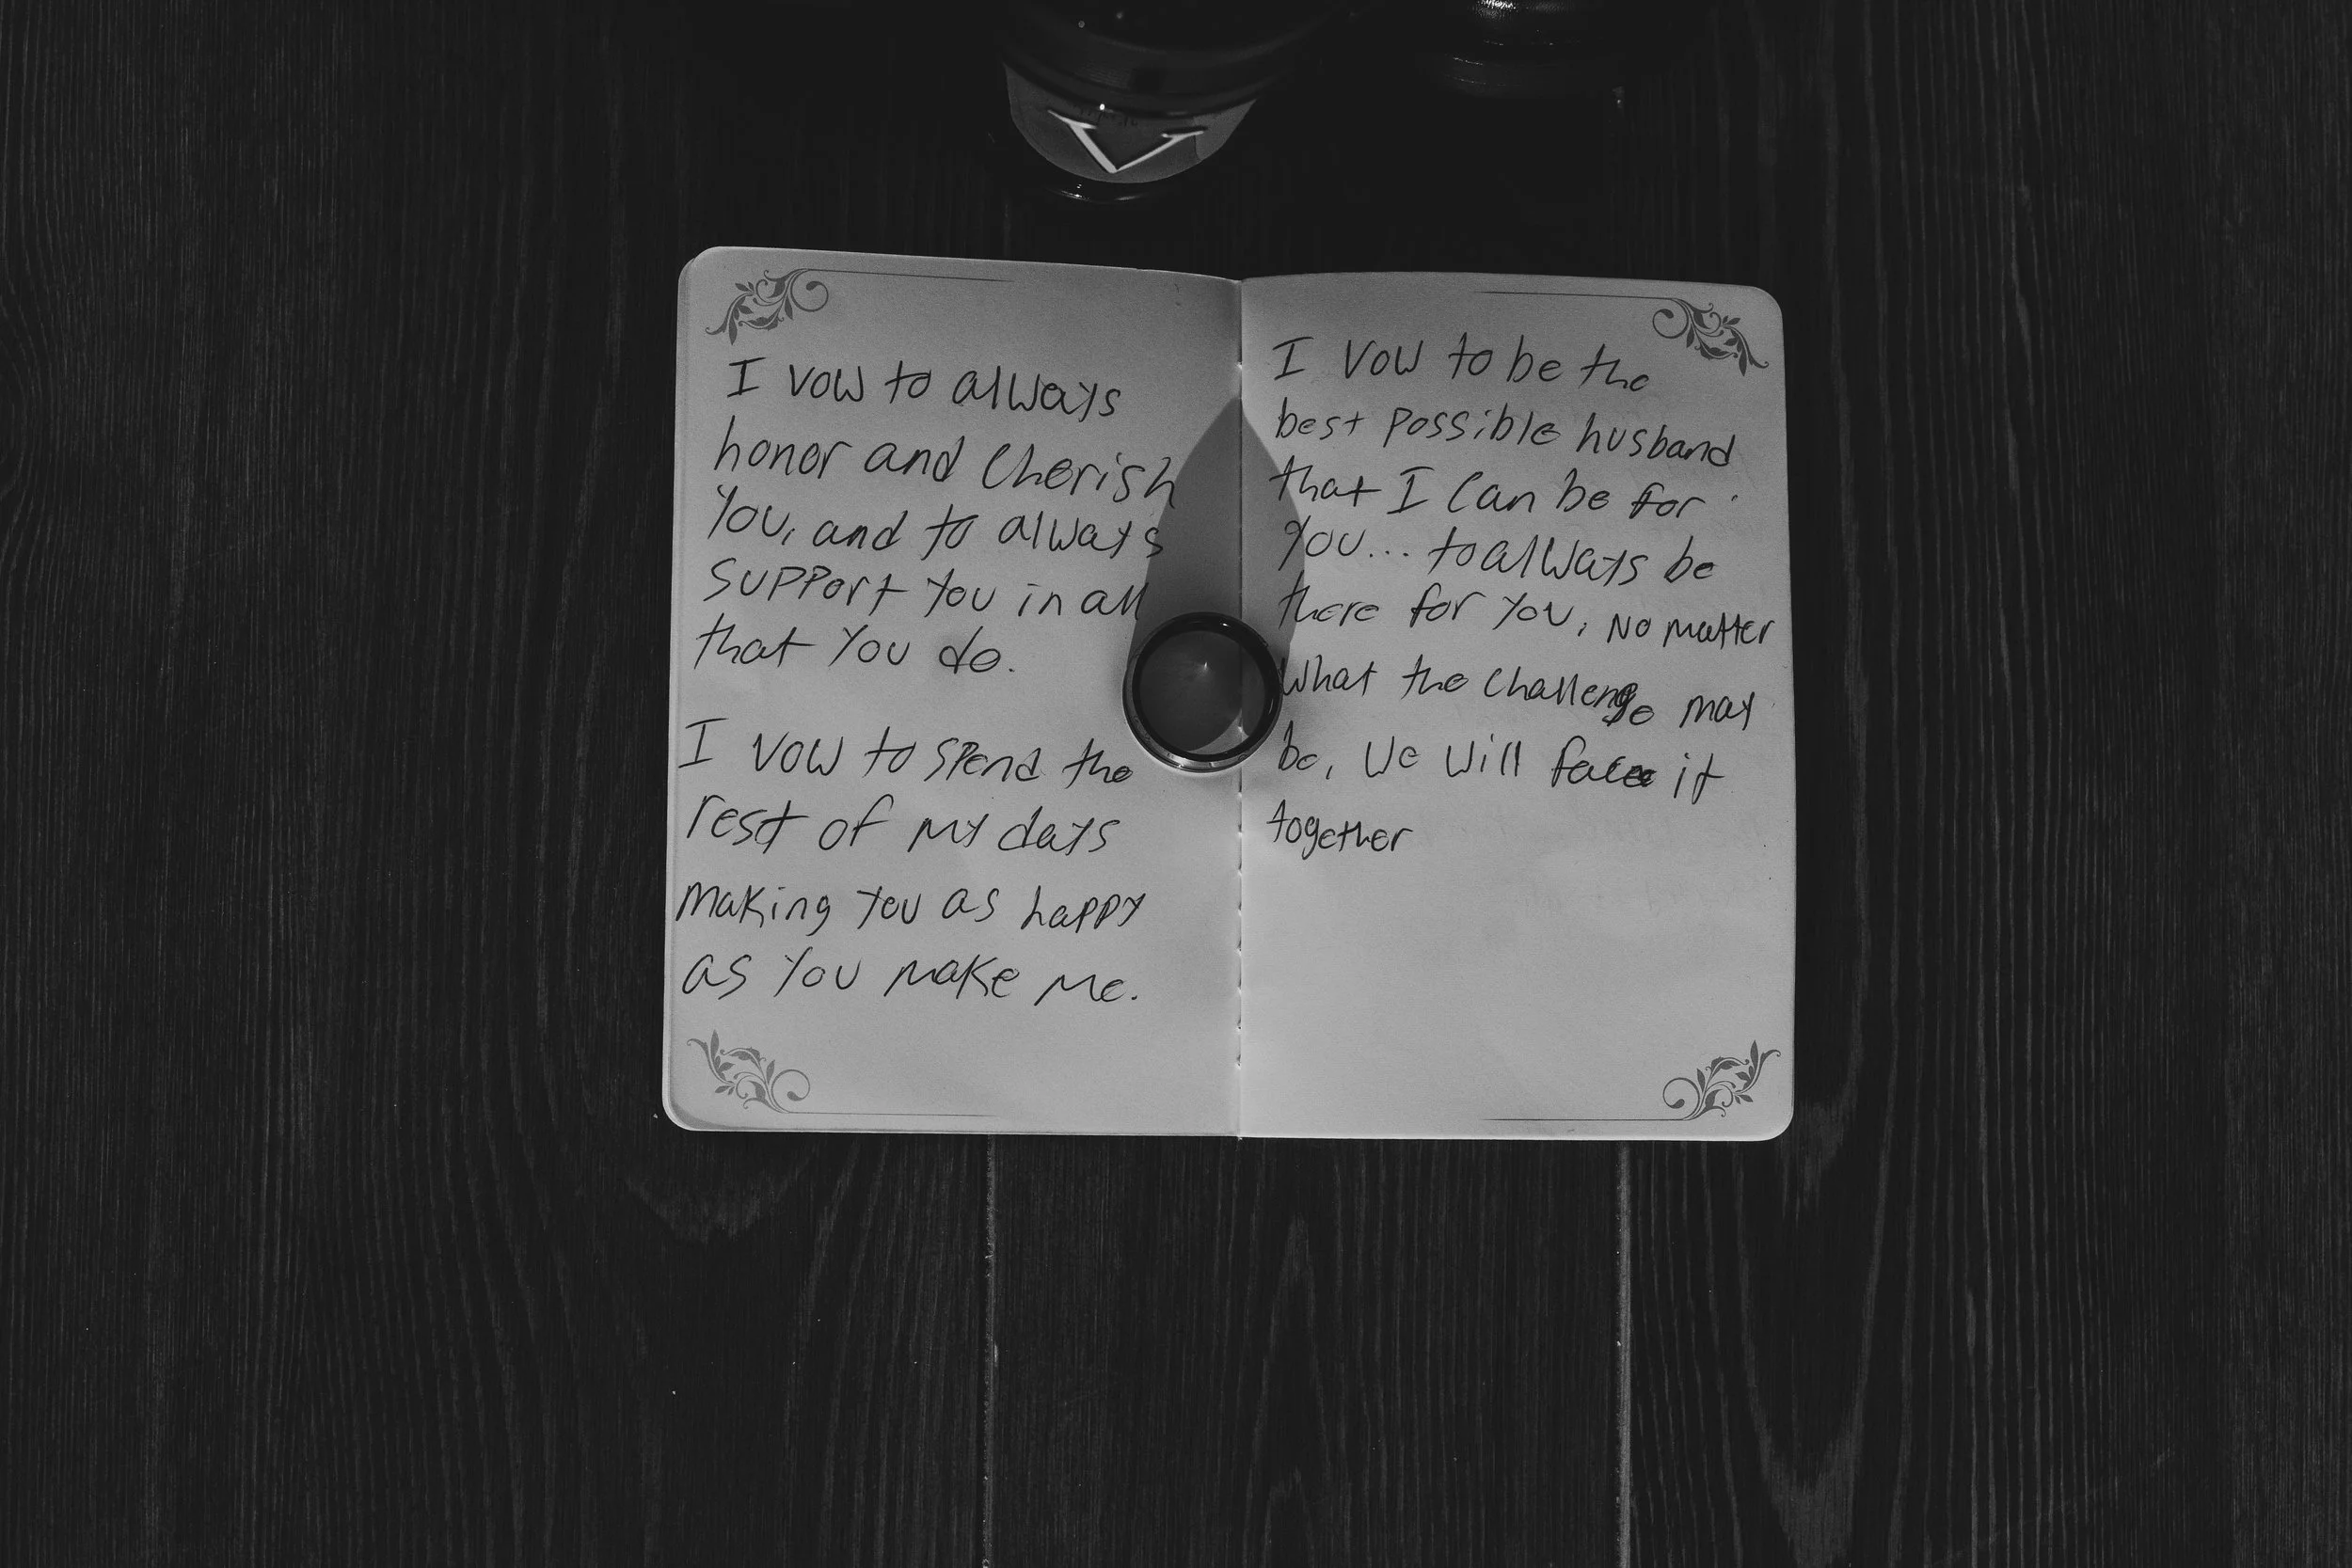 V
I vow to always
honor and cherish
you, and to always
support you in all
that you do.
I vow to spend the
rest of my days
making you as happy
as you make me.
I vow to be the
best possible husband
that I can be for
you... to always be
there for you, no matter
what the challenge may
be, we will face it
together